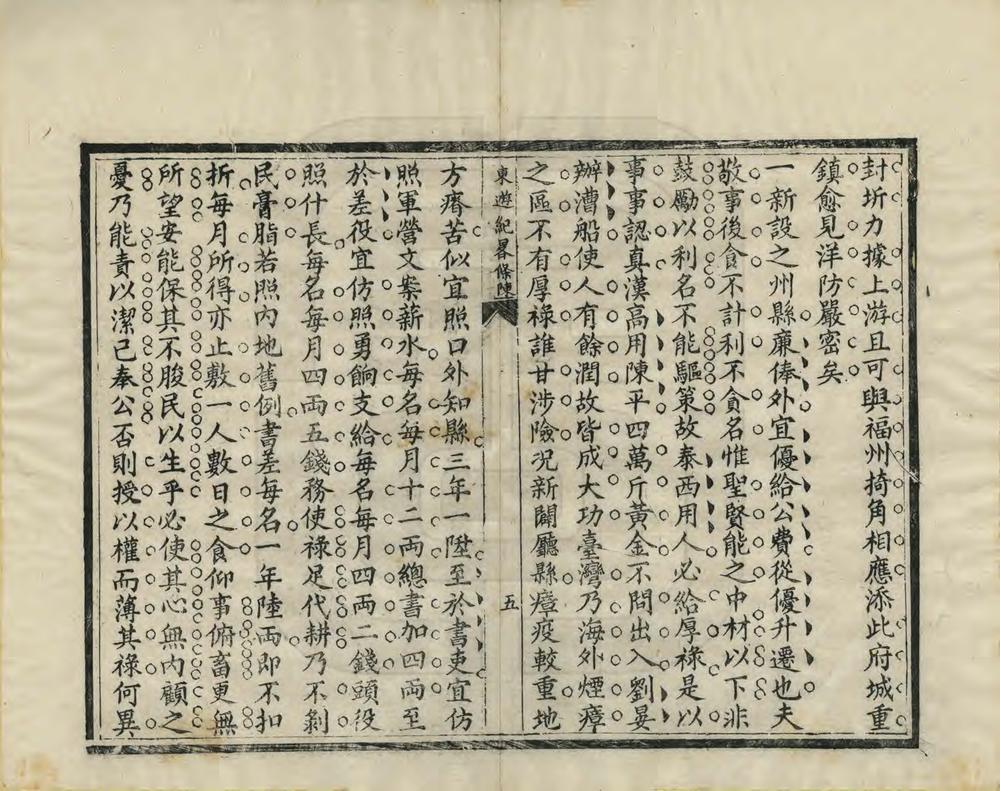 封圻力據上游且可與福州掎角相應添此府城重
鎮愈見洋防嚴密矣
一新設之州縣廉俸外宜優給公費從優升遷也夫
敬事後食不計利不貪名惟聖賢能之中材以下非
鼓勵以利名不能驅策故泰西用人必給厚祿是以
事事認真漢高用陳平四萬斤黃金不問出入劉晏
辦漕船使人有餘潤故皆成大功臺灣乃海外煙瘴
之區不有厚祿誰甘涉險况新闢廳縣瘴疫較重地
東遊紀畧條陳
五
方瘠苦似宜照口外知縣三年一陞至於書吏宜仿
照軍營文案薪水每名每月十二兩總書加四兩至
於差役宜仿照勇餉支給每名每月四兩二錢頭役
照什長每名每月四両五錢務使祿足代耕乃不剝
民膏脂若照內地舊例書差每名一年陸両即不扣
折每月所得亦止敷一人數日之食仰事俯畜更無
所望安能保其不朘民以生乎必使其心無內顧之
憂乃能責以潔己奉公否則授以權而薄其祿何異